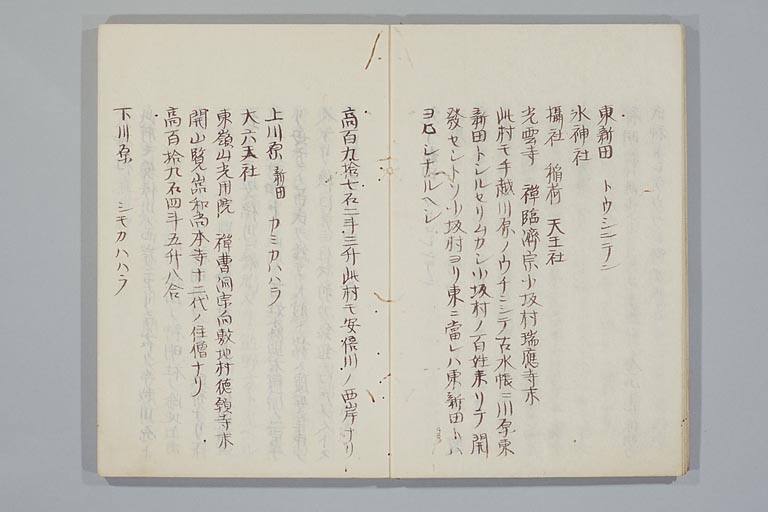 東新田　トウシンテン
氷神社
攝社　稲荷　天王社
光雲寺　禅臨濟宗小坂村瑞應寺末
此村モ手越川原ノウチニシテ古水帳ニ川原東
新田トシルセリムカシ小坂村ノ百姓来リテ開
發セシトソ小坂村ヨリ東ニ當レハ東新田トハ
ヨヒシナルヘシ
高百九拾七石二斗三升此村モ安倍川ノ西岸ナリ
上川原　新田　カミカハハラ
大六天社
東嶺山光用院　禅曹洞宗向敷地村徳願寺末
開山覧嵓和尚本寺十二代ノ住僧ナリ
高百拾九石四斗五升八合
下川原　シモカハハラ